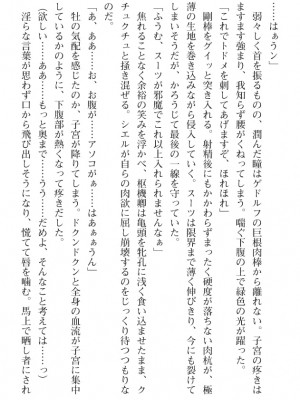 ……はぁうン」
　弱々しく首を振るものの、潤んだ瞳はゲドルフの巨根肉棒から離れない。子宮の疼きは
ますます強まり、我知らず腰がくねってしまう。喘ぐ下腹の上で緑色の光が躍った。
「これでトドメを刺してあげますぞ、ほれほれ」
　剛棒をグイッと突き入れる。射精後にもかかわらずまったく硬度が落ちない肉杭が、極
薄の生地を巻き込みながら侵入していく。スーツは限界まで薄く伸びきり、今にも裂けて
しまいそうだが、かろうじて最後の一線を守っていた。
「ふうむ、スーツが邪魔でこれ以上入れられませんなぁ」
　焦れることなく余裕の笑みを浮かべ、枢機卿は亀頭を牝孔に浅く食い込ませたまま、ク
チュクチュと掻き混ぜる。シエルが自らの肉欲に屈し崩壊するのをじっくり待つつもりな
のだ。
「あ、ああ……お、お腹が……アソコがぁ……はぁぁうん」
　牡の気配を感じたのか、子宮が降りてしまう。ドクンドクンと全身の血流が子宮に集中
しているかのように、下腹部が熱くなって疼きだした。
（欲しい……ああ……もっと奥まで……うう……だめよ、そんなこと考えては……っ）
　淫らな言葉が思わず口から飛び出しそうになり、慌てて唇を噛む。馬上で晒し者にされ